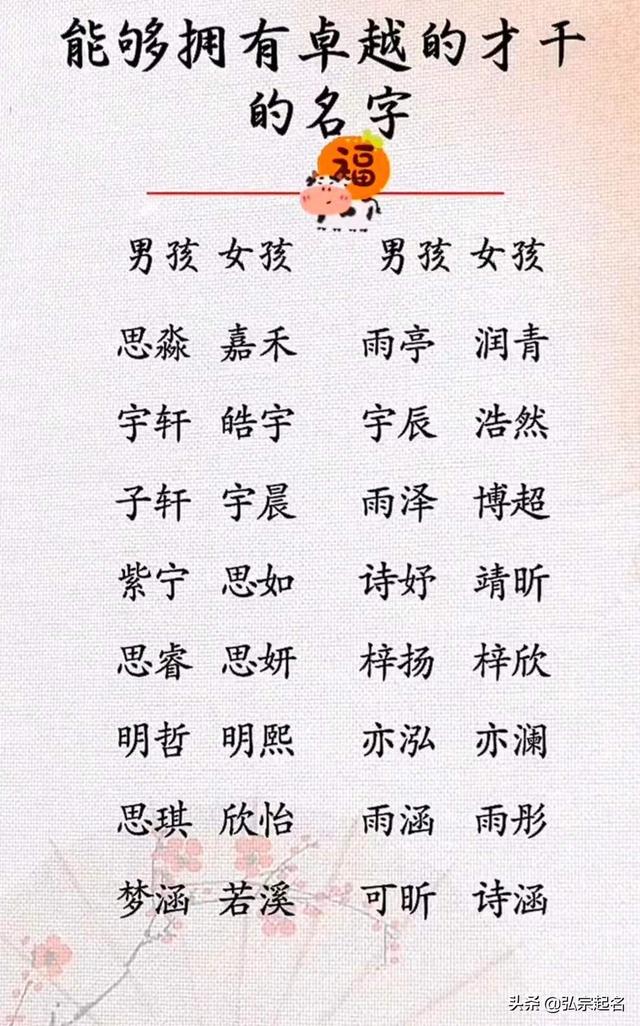 能够拥有卓越的才干
的名字
福
男孩 女孩 男孩 女孩
思淼 嘉禾 雨亭 润青
宇轩 皓宇 宇辰 浩然
子轩 宇晨 雨泽 博超
紫宁 思如 诗妤 靖昕
思睿 思妍 梓扬 梓欣
明哲 明熙 亦泓 亦澜
思琪 欣怡 雨涵 雨彤
梦涵 若溪 可昕 诗涵
头条 @弘宗起名